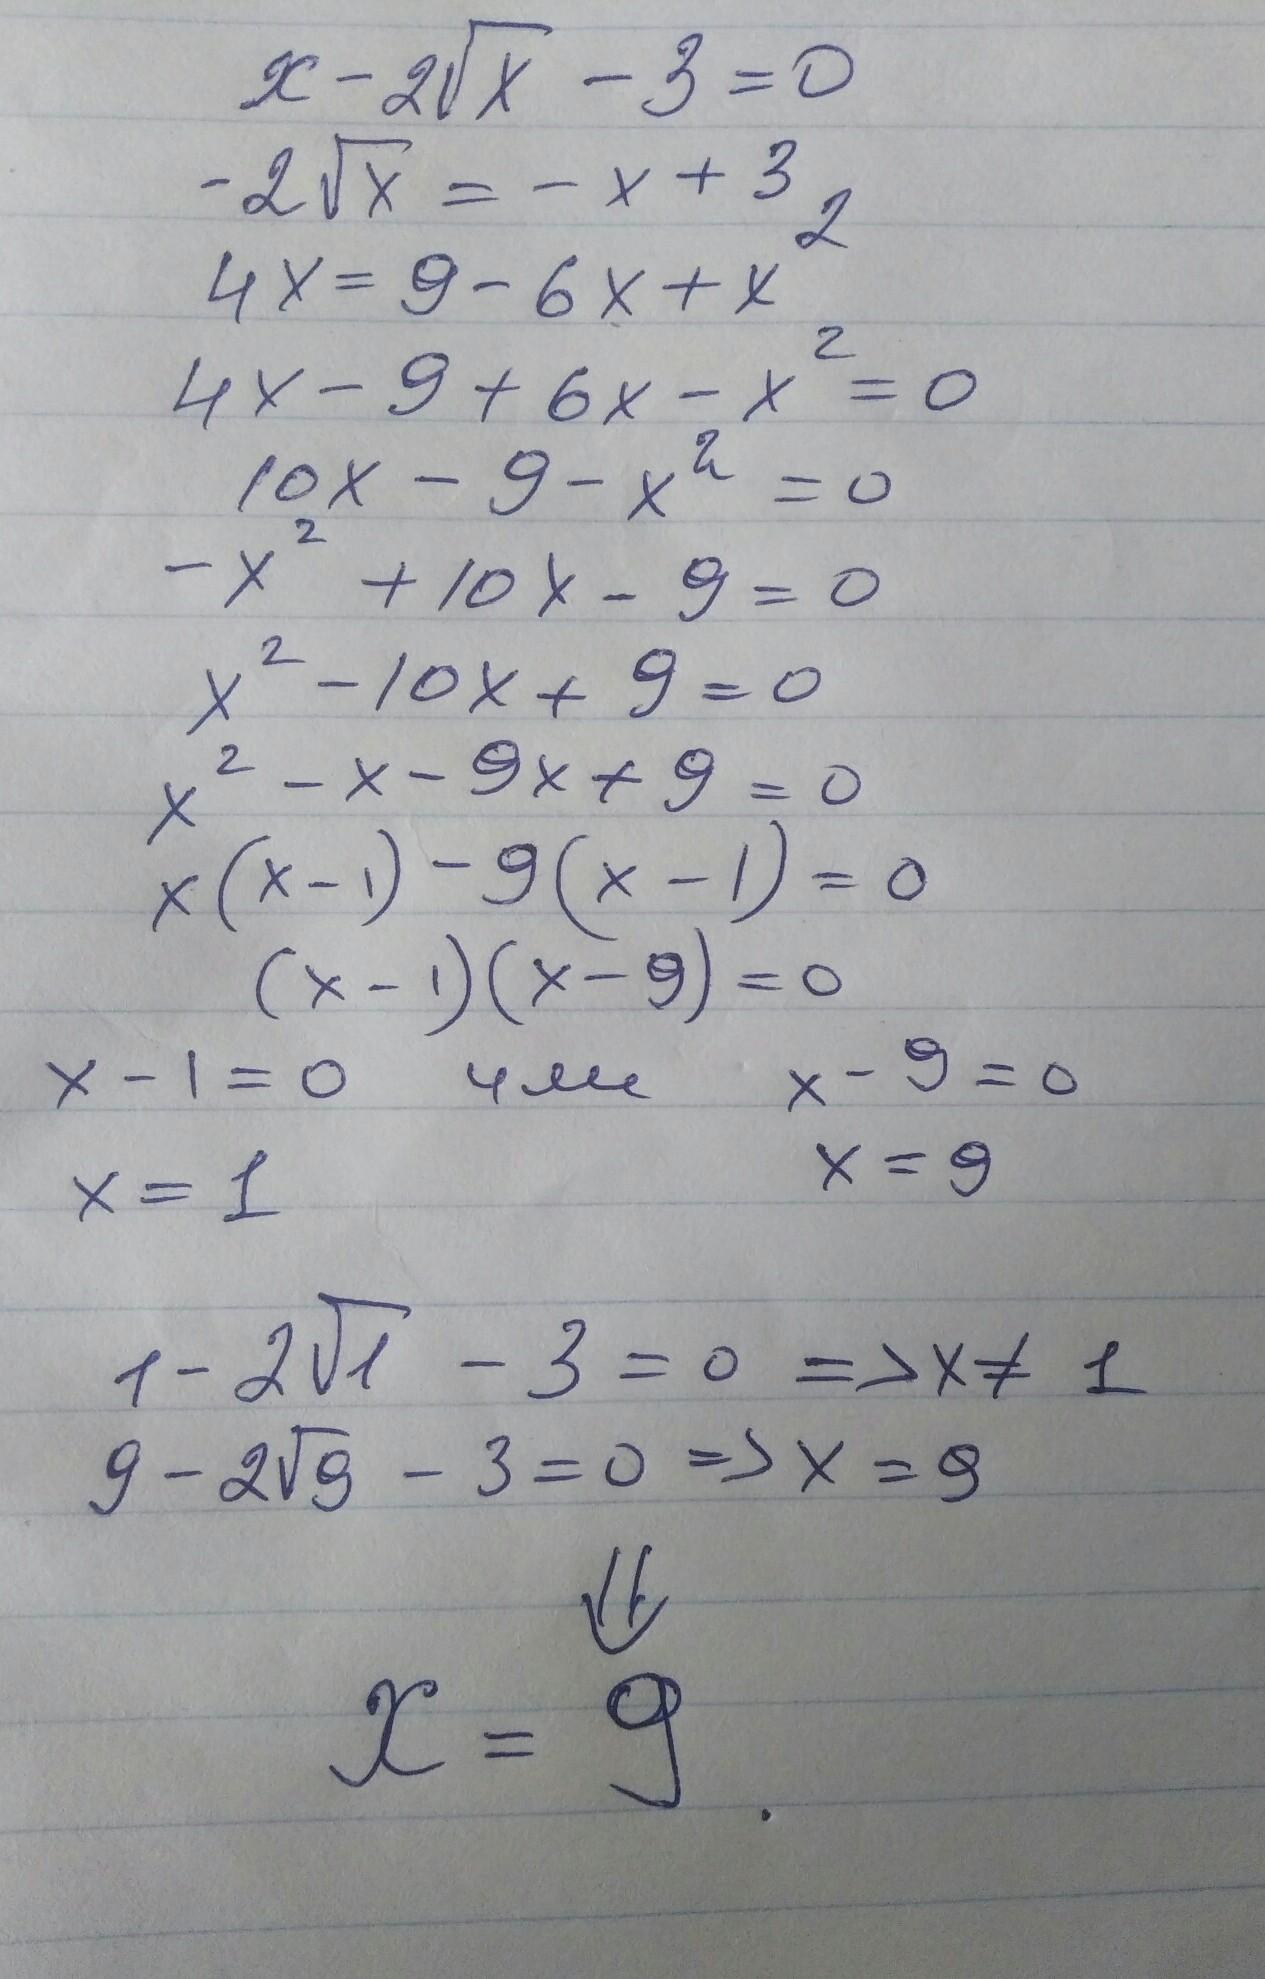 x - 2√x - 3 = 0
-2√x = -x + 3
4x = 9 - 6x + x²
4x - 9 + 6x - x² = 0
10x - 9 - x² = 0
-x² + 10x - 9 = 0
x² - 10x + 9 = 0
x² - x - 9x + 9 = 0
x(x - 1) - 9(x - 1) = 0
(x - 1)(x - 9) = 0
x - 1 = 0 или x - 9 = 0
x = 1 x = 9
1 - 2√1 - 3 = 0 => x ≠ 1
9 - 2√9 - 3 = 0 => x = 9
⇓
x = 9.